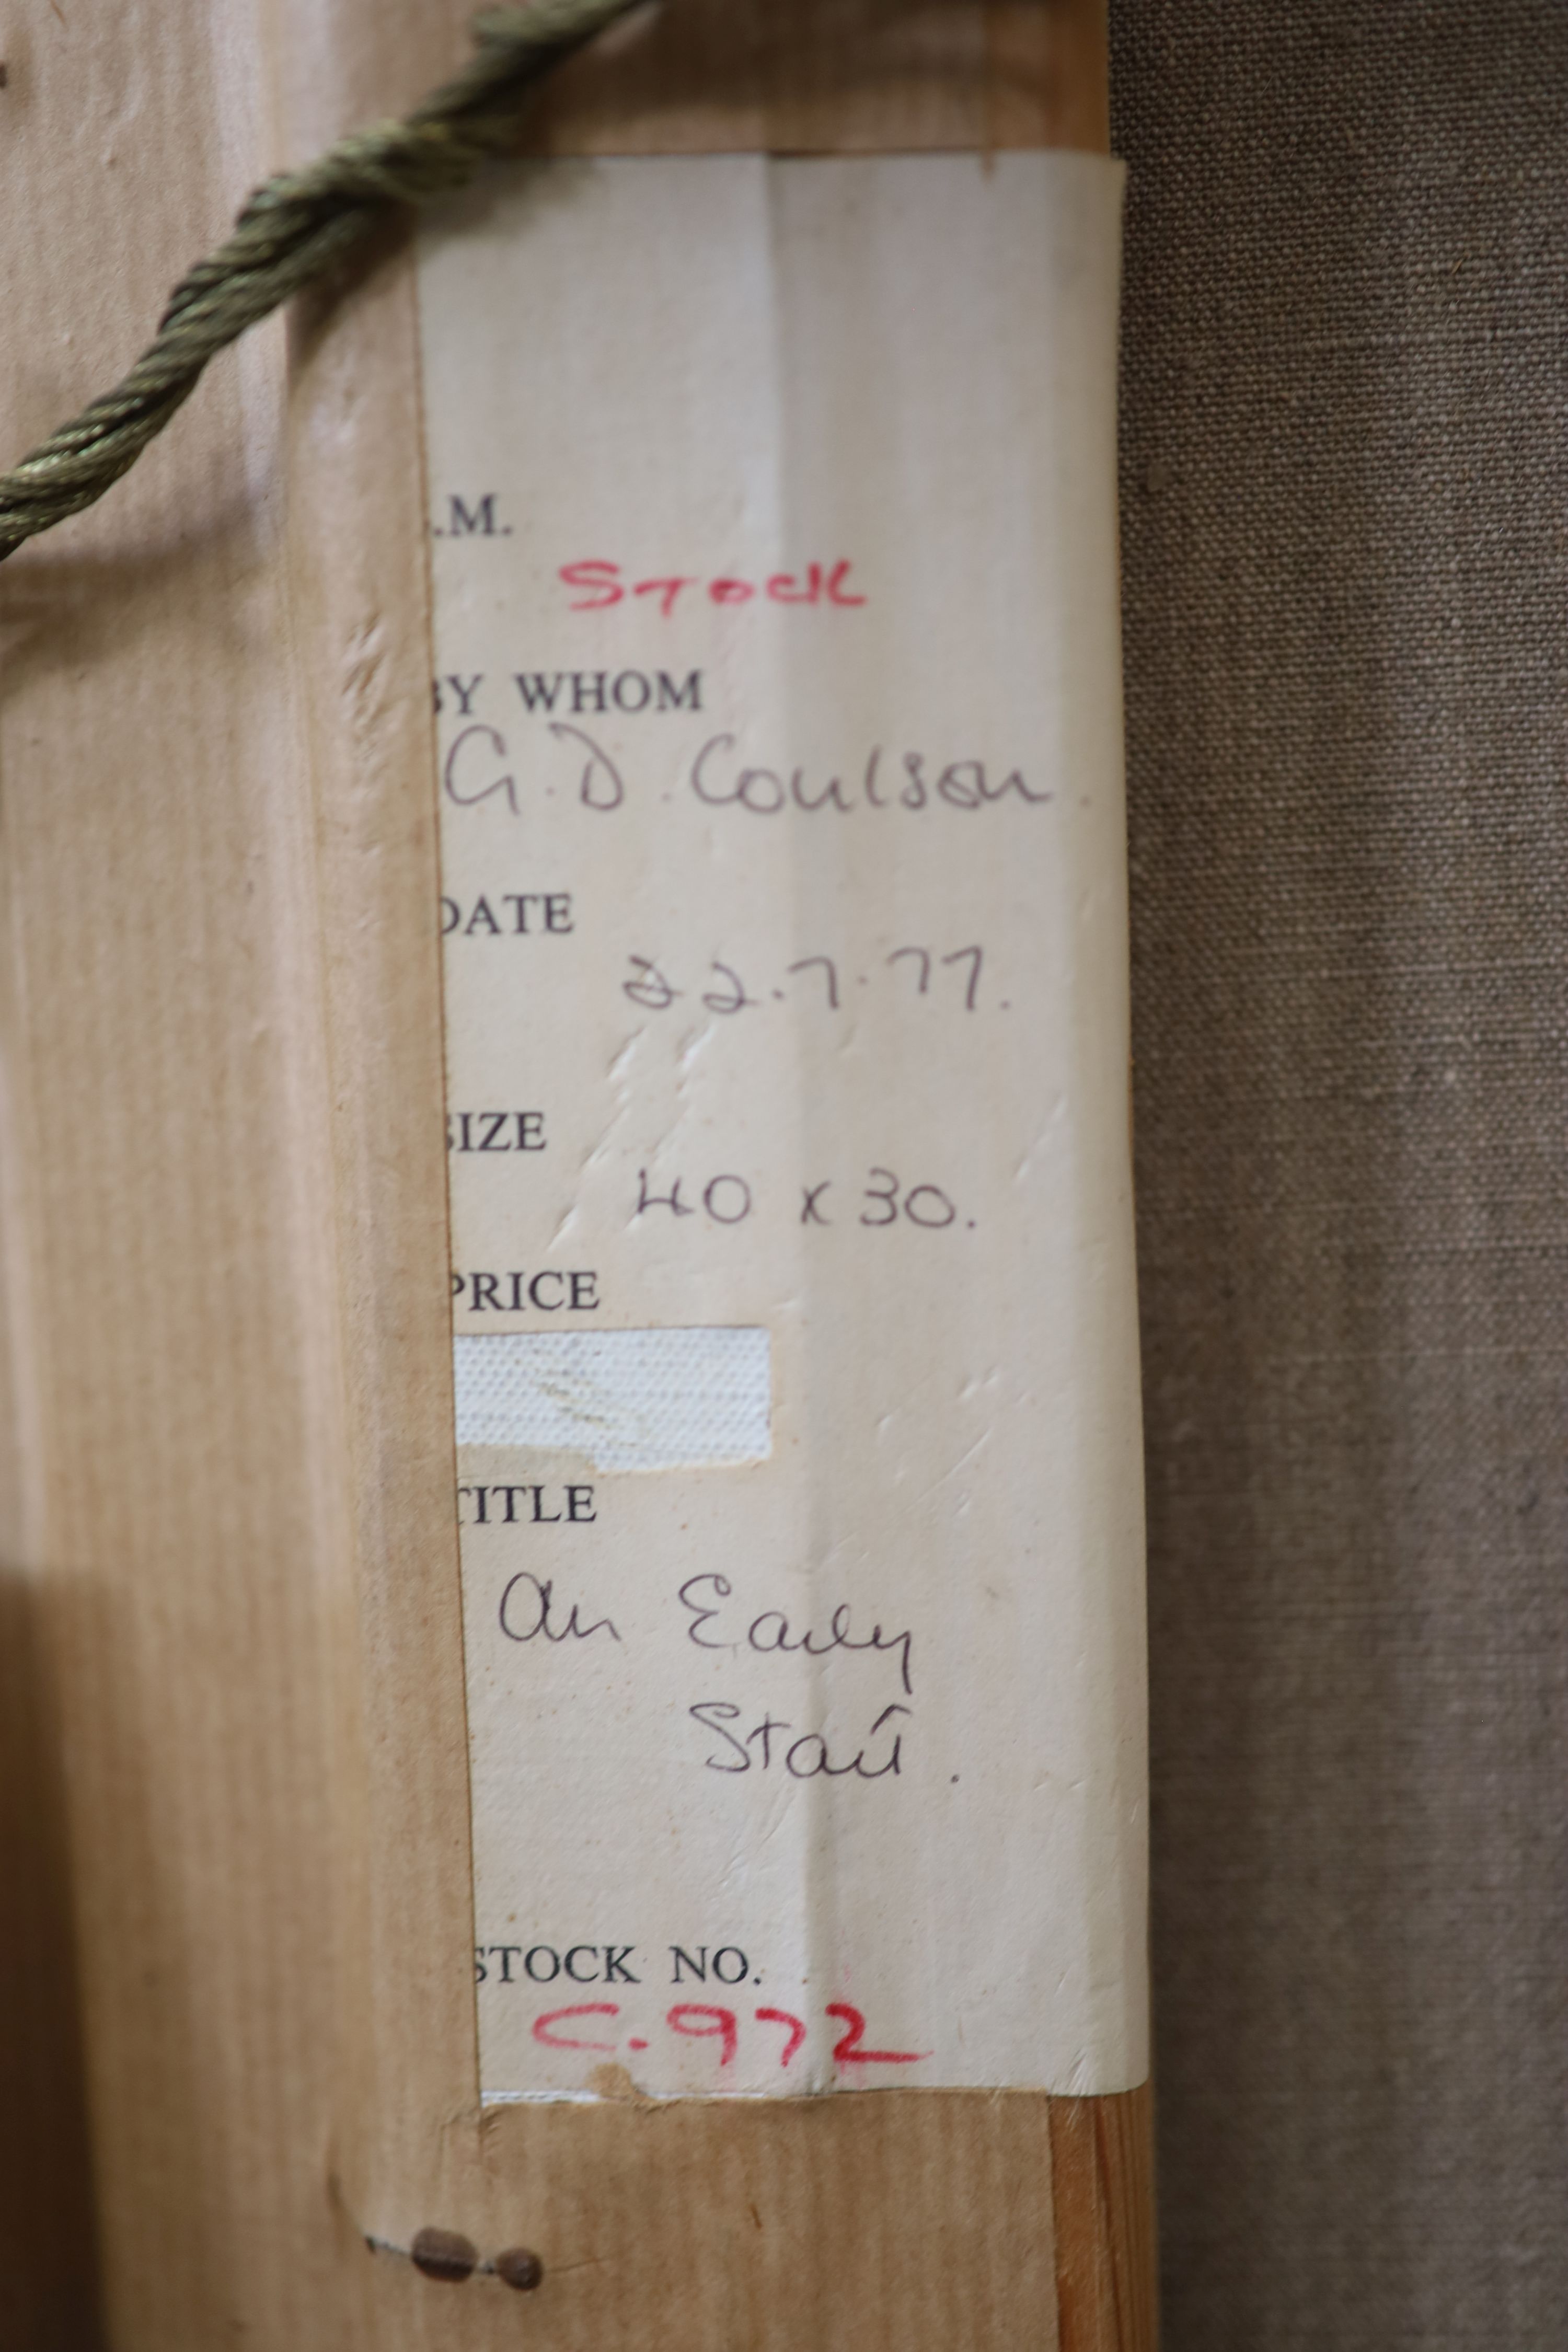 .M.
STOCK
BY WHOM
G.D. Coulson.
DATE
22.7.77.
SIZE
40 x 30.
PRICE
TITLE
An Early
Start.
STOCK NO.
C.972